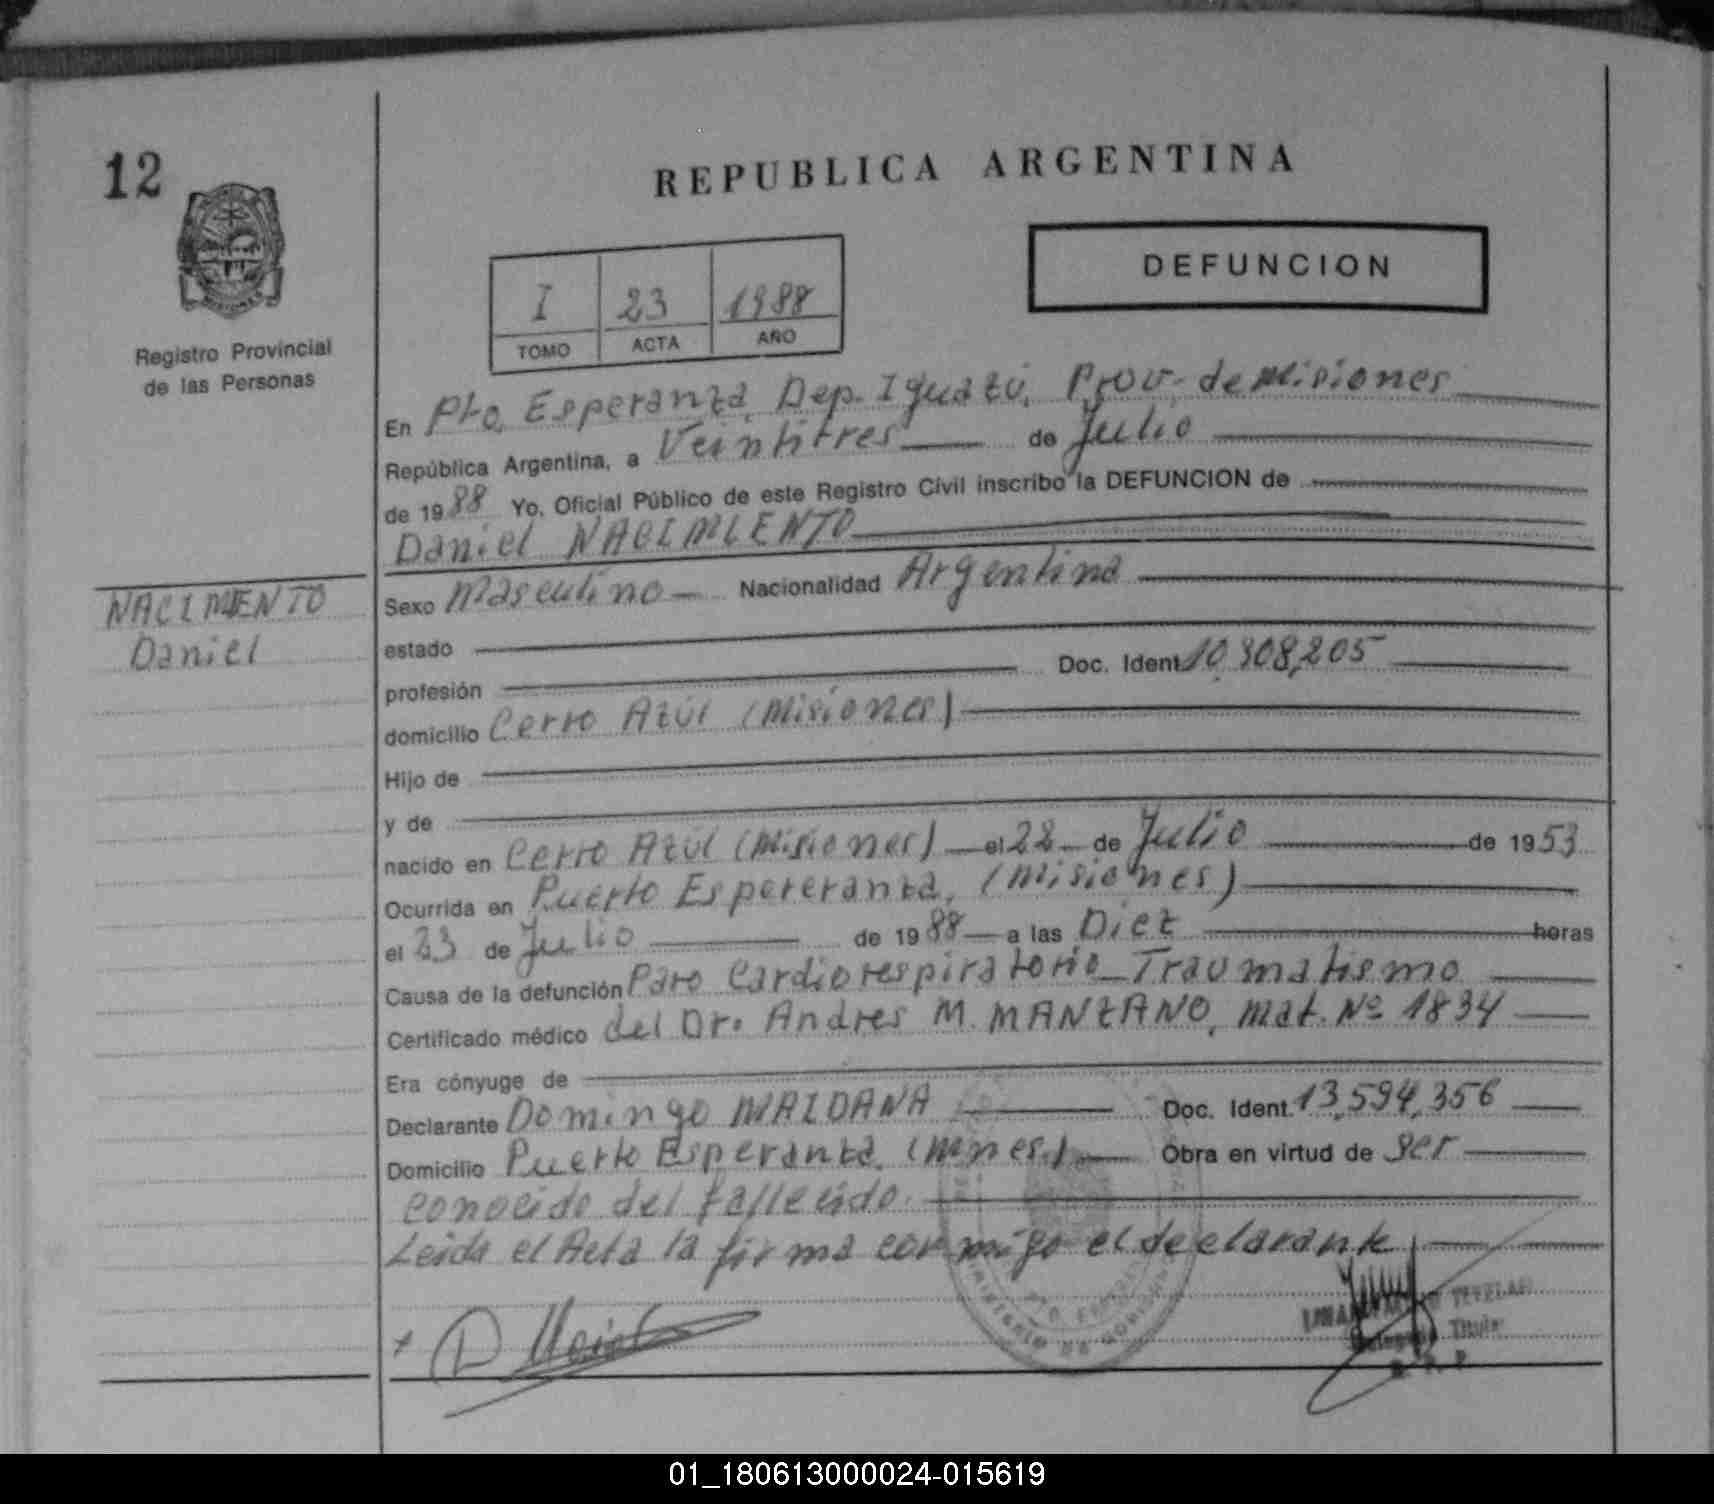 12
REPUBLICA ARGENTINA
DEFUNCION
I 23 1988
TOMO ACTA AÑO
Registro Provincial
de las Personas
En Pto. Esperanza, Dep. Iguazú, Prov. de Misiones
República Argentina, a Veintitres de Julio
de 1988 Yo, Oficial Público de este Registro Civil inscribo la DEFUNCION de
Daniel NACIMIENTO
NACIMIENTO
Daniel
Sexo Masculino Nacionalidad Argentina
estado
profesión Doc. Ident. 10,908,205
domicilio Cerro Azúl (Misiones)
Hijo de
y de
nacido en Cerro Azúl (Misiones) el 28 de Julio de 1953
Ocurrida en Puerto Espereranza, (Misiones)
el 23 de Julio de 1988 a las Diez horas
Causa de la defunción Paro Cardiorespiratorio Traumatismo
Certificado médico del Dr. Andres M. MANZANO, mat. Nº 1834
Era cónyuge de
Declarante Domingo MAIDANA Doc. Ident. 13,594,356
Domicilio Puerto Esperanza, (Mnes.) Obra en virtud de ser
conocido del fallecido.
Leida el Acta la firma conmigo el declarante
MINISTERIO DE GOBIERNO
Titular
01_180613000024-015619